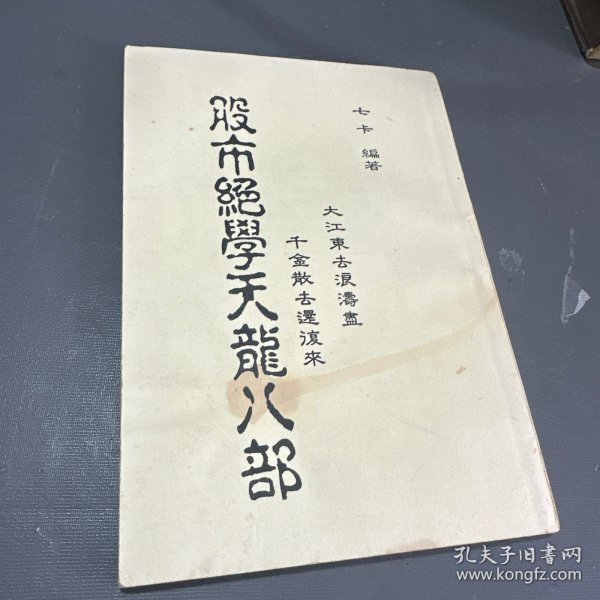 七卡 編著
大江東去浪濤盡
千金散去還復來
股市絕學天龍八部
孔夫子旧书网
www.kongfz.com